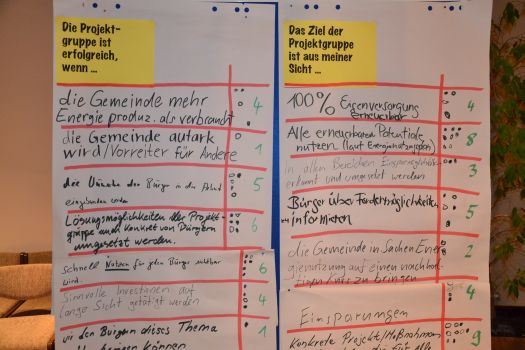 Die Projekt-
gruppe ist
erfolgreich,
wenn ...
die Gemeinde mehr
Energie produz. als verbraucht
4
die Gemeinde autark
wird/Vorreiter für Andere
1
die Wünsche der Bürger in den
eingebunden werden
5
Lösungsmöglichkeiten der Projekt-
gruppe auch konkret von Bürgern
umgesetzt werden.
6
schnell Nutzen für jeden Bürger sichtbar
wird.
6
Sinnvolle Investitionen auf
lange Sicht getätigt werden
4
wir den Bürgern dieses Thema
näher bringen können
1
Das Ziel der
Projektgruppe
ist aus meiner
Sicht ...
100% Eigenversorgung
erneuerbar
4
Alle erneuerbaren Potentiale
nutzen (laut Energienutzungsplan)
8
In allen Bereichen Einsparmöglichkeiten
erkannt und umgesetzt werden
3
Bürger über Fördermöglichkeiten
informieren
5
die Gemeinde in Sachen Ener-
gienutzung auf einen nachhal-
tigen Kurs zu bringen
2
4
Einsparungen
Konkrete Projekte/Maßnahmen
9